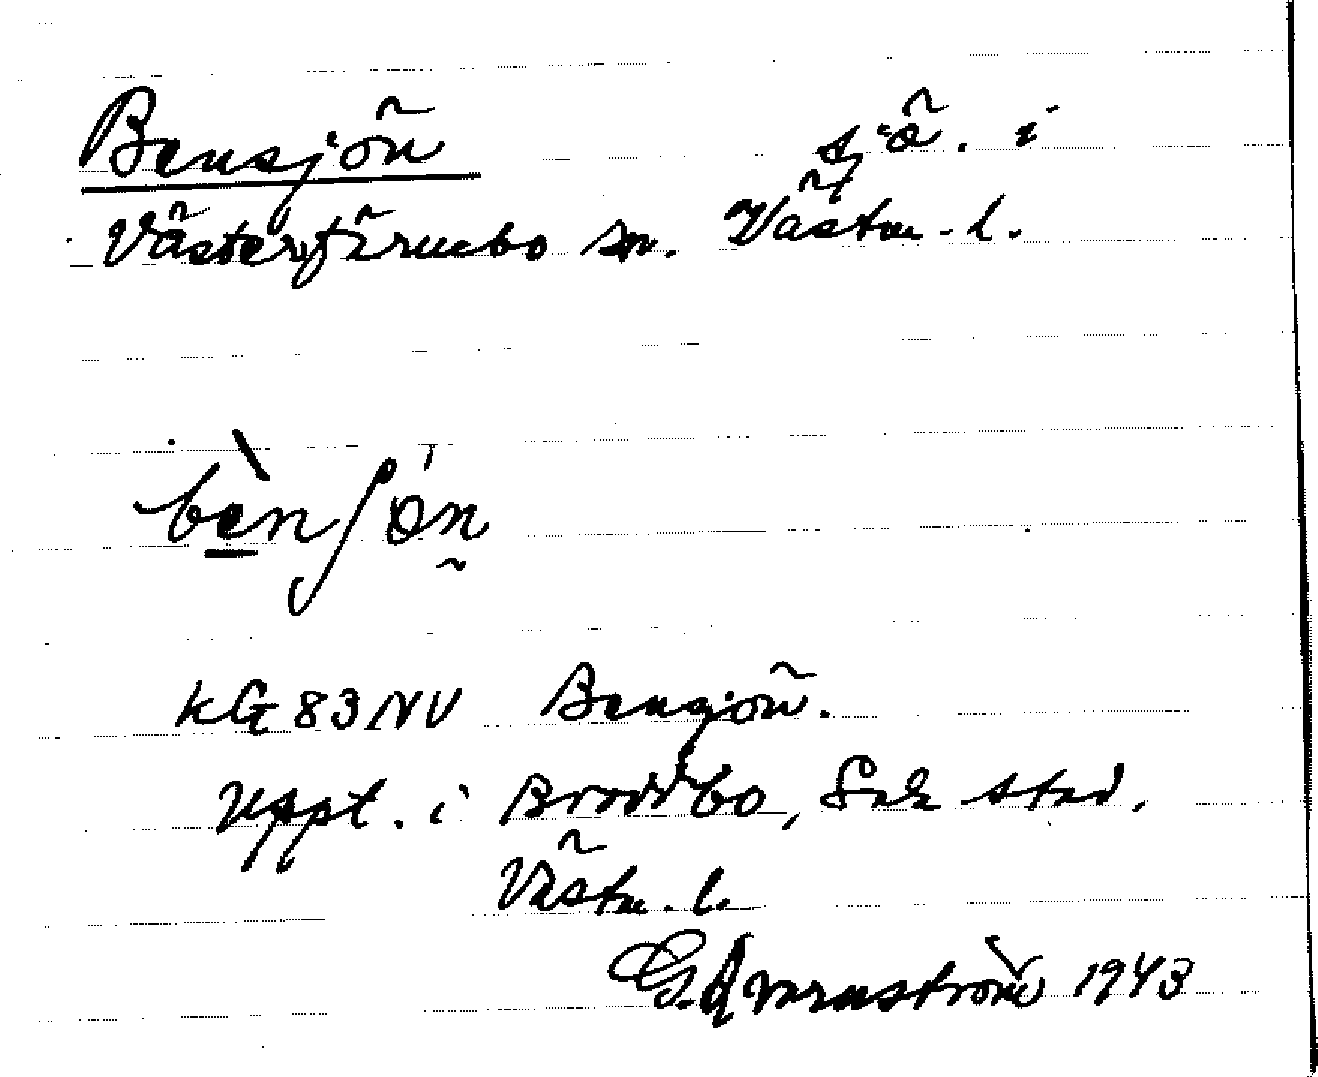 Bensjön sjö. i
Västerfärnebo sn. Västm. l.
bènʃön
KG 83 NV Bensjön.
Uppt. i Broddbo, Sala stad,
Västm. l.
G. Kvarnström 1943